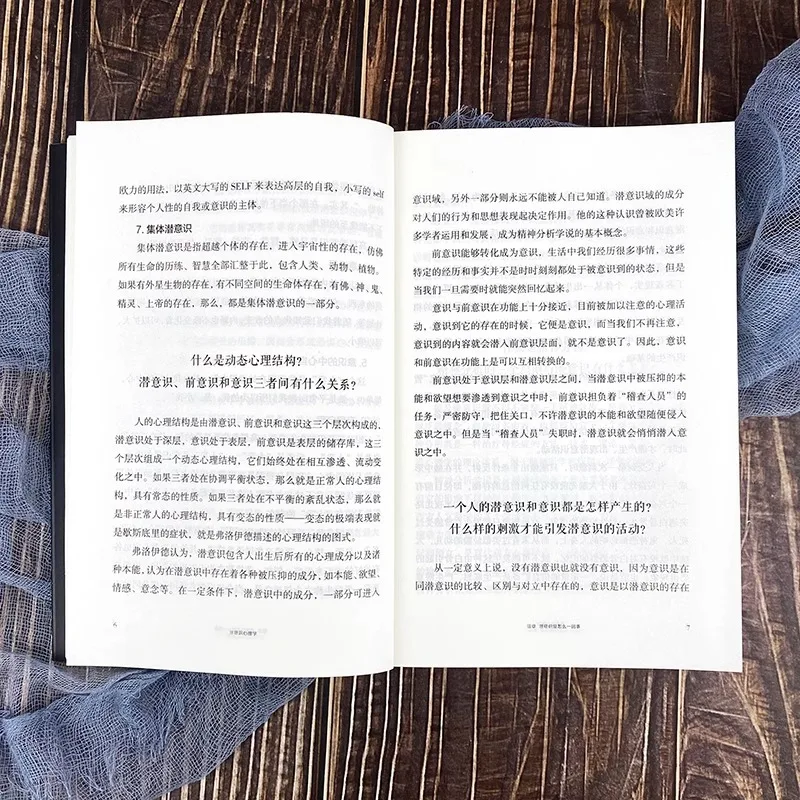 欧力的用法，以英文大写的 SELF 来表达高层的自我，小写的 self
来形容个人性的自我或意识的主体。
7. 集体潜意识
集体潜意识是指超越个体的存在，进入宇宙性的存在，仿佛
所有生命的历练、智慧全部汇整于此，包含人类、动物、植物。
如果有外星生物的存在，有不同空间的生命体存在，有佛、神、鬼、
精灵、上帝的存在，那么，都是集体潜意识的一部分。
什么是动态心理结构？
潜意识、前意识和意识三者间有什么关系？
人的心理结构是由潜意识、前意识和意识这三个层次构成的，
潜意识处于深层，意识处于表层，前意识是表层的储存库，这三
个层次组成一个动态心理结构，它们始终处在相互渗透、流动变
化之中。如果三者处在协调平衡状态，那么就是正常人的心理结
构，具有常态的性质。如果三者处在不平衡的紊乱状态，那么就
是非正常人的心理结构，具有变态的性质——变态的极端表现就
是歇斯底里的症状，就是弗洛伊德描述的心理结构的图式。
弗洛伊德认为，潜意识包含人出生后所有的心理成分以及诸
种本能，认为在潜意识中存在着各种被压抑的成分，如本能、欲望、
情感、意念等。在一定条件下，潜意识中的成分，一部分可进入
6
潜意识心理学
意识域，另外一部分则永远不能被人自己知道。潜意识域的成分
对人们的行为和思想表现起决定作用。他的这种认识曾被欧美许
多学者运用和发展，成为精神分析学说的基本概念。
前意识能够转化成为意识，生活中我们经历很多事情，这些
特定的经历和事实并不是时时刻刻都处于被意识到的状态，但是
当我们一旦需要时就能突然回忆起来。
意识与前意识在功能上十分接近，目前被加以注意的心理活
动，意识到它的存在的时候，它便是意识，而当我们不再注意，
意识到的内容就会潜入前意识层面，就不是意识了。因此，意识
和前意识在功能上是可以互相转换的。
前意识处于意识层和潜意识层之间，当潜意识中被压抑的本
能和欲望想要渗透到意识之中时，前意识担负着“稽查人员”的
任务，严密防守，把住关口，不许潜意识的本能和欲望随便侵入
意识之中。但是当“稽查人员”失职时，潜意识就会悄悄潜入意
识之中。
一个人的潜意识和意识都是怎样产生的？
什么样的刺激才能引发潜意识的活动？
从一定意义上说，没有潜意识也就没有意识，因为意识是在
同潜意识的比较、区别与对立中存在的，意识是以潜意识的存在
7